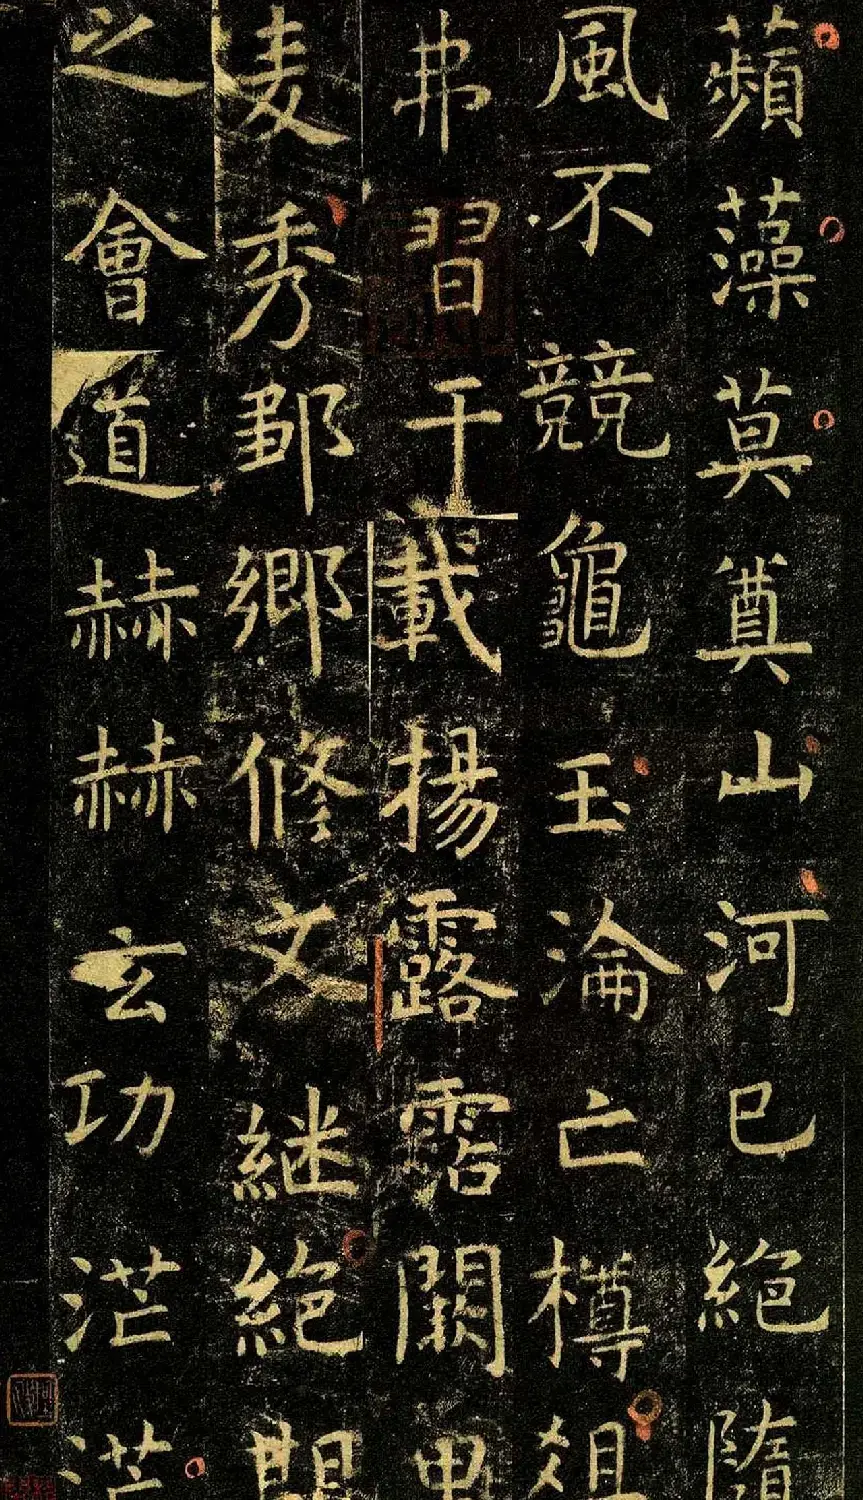 蘋藻莫奠山河已絶隋
風不競龜玉淪亡樽俎
弗習干載揚露霑闕里
麦秀鄒鄉修文継絶期
之會道赫赫玄功茫茫